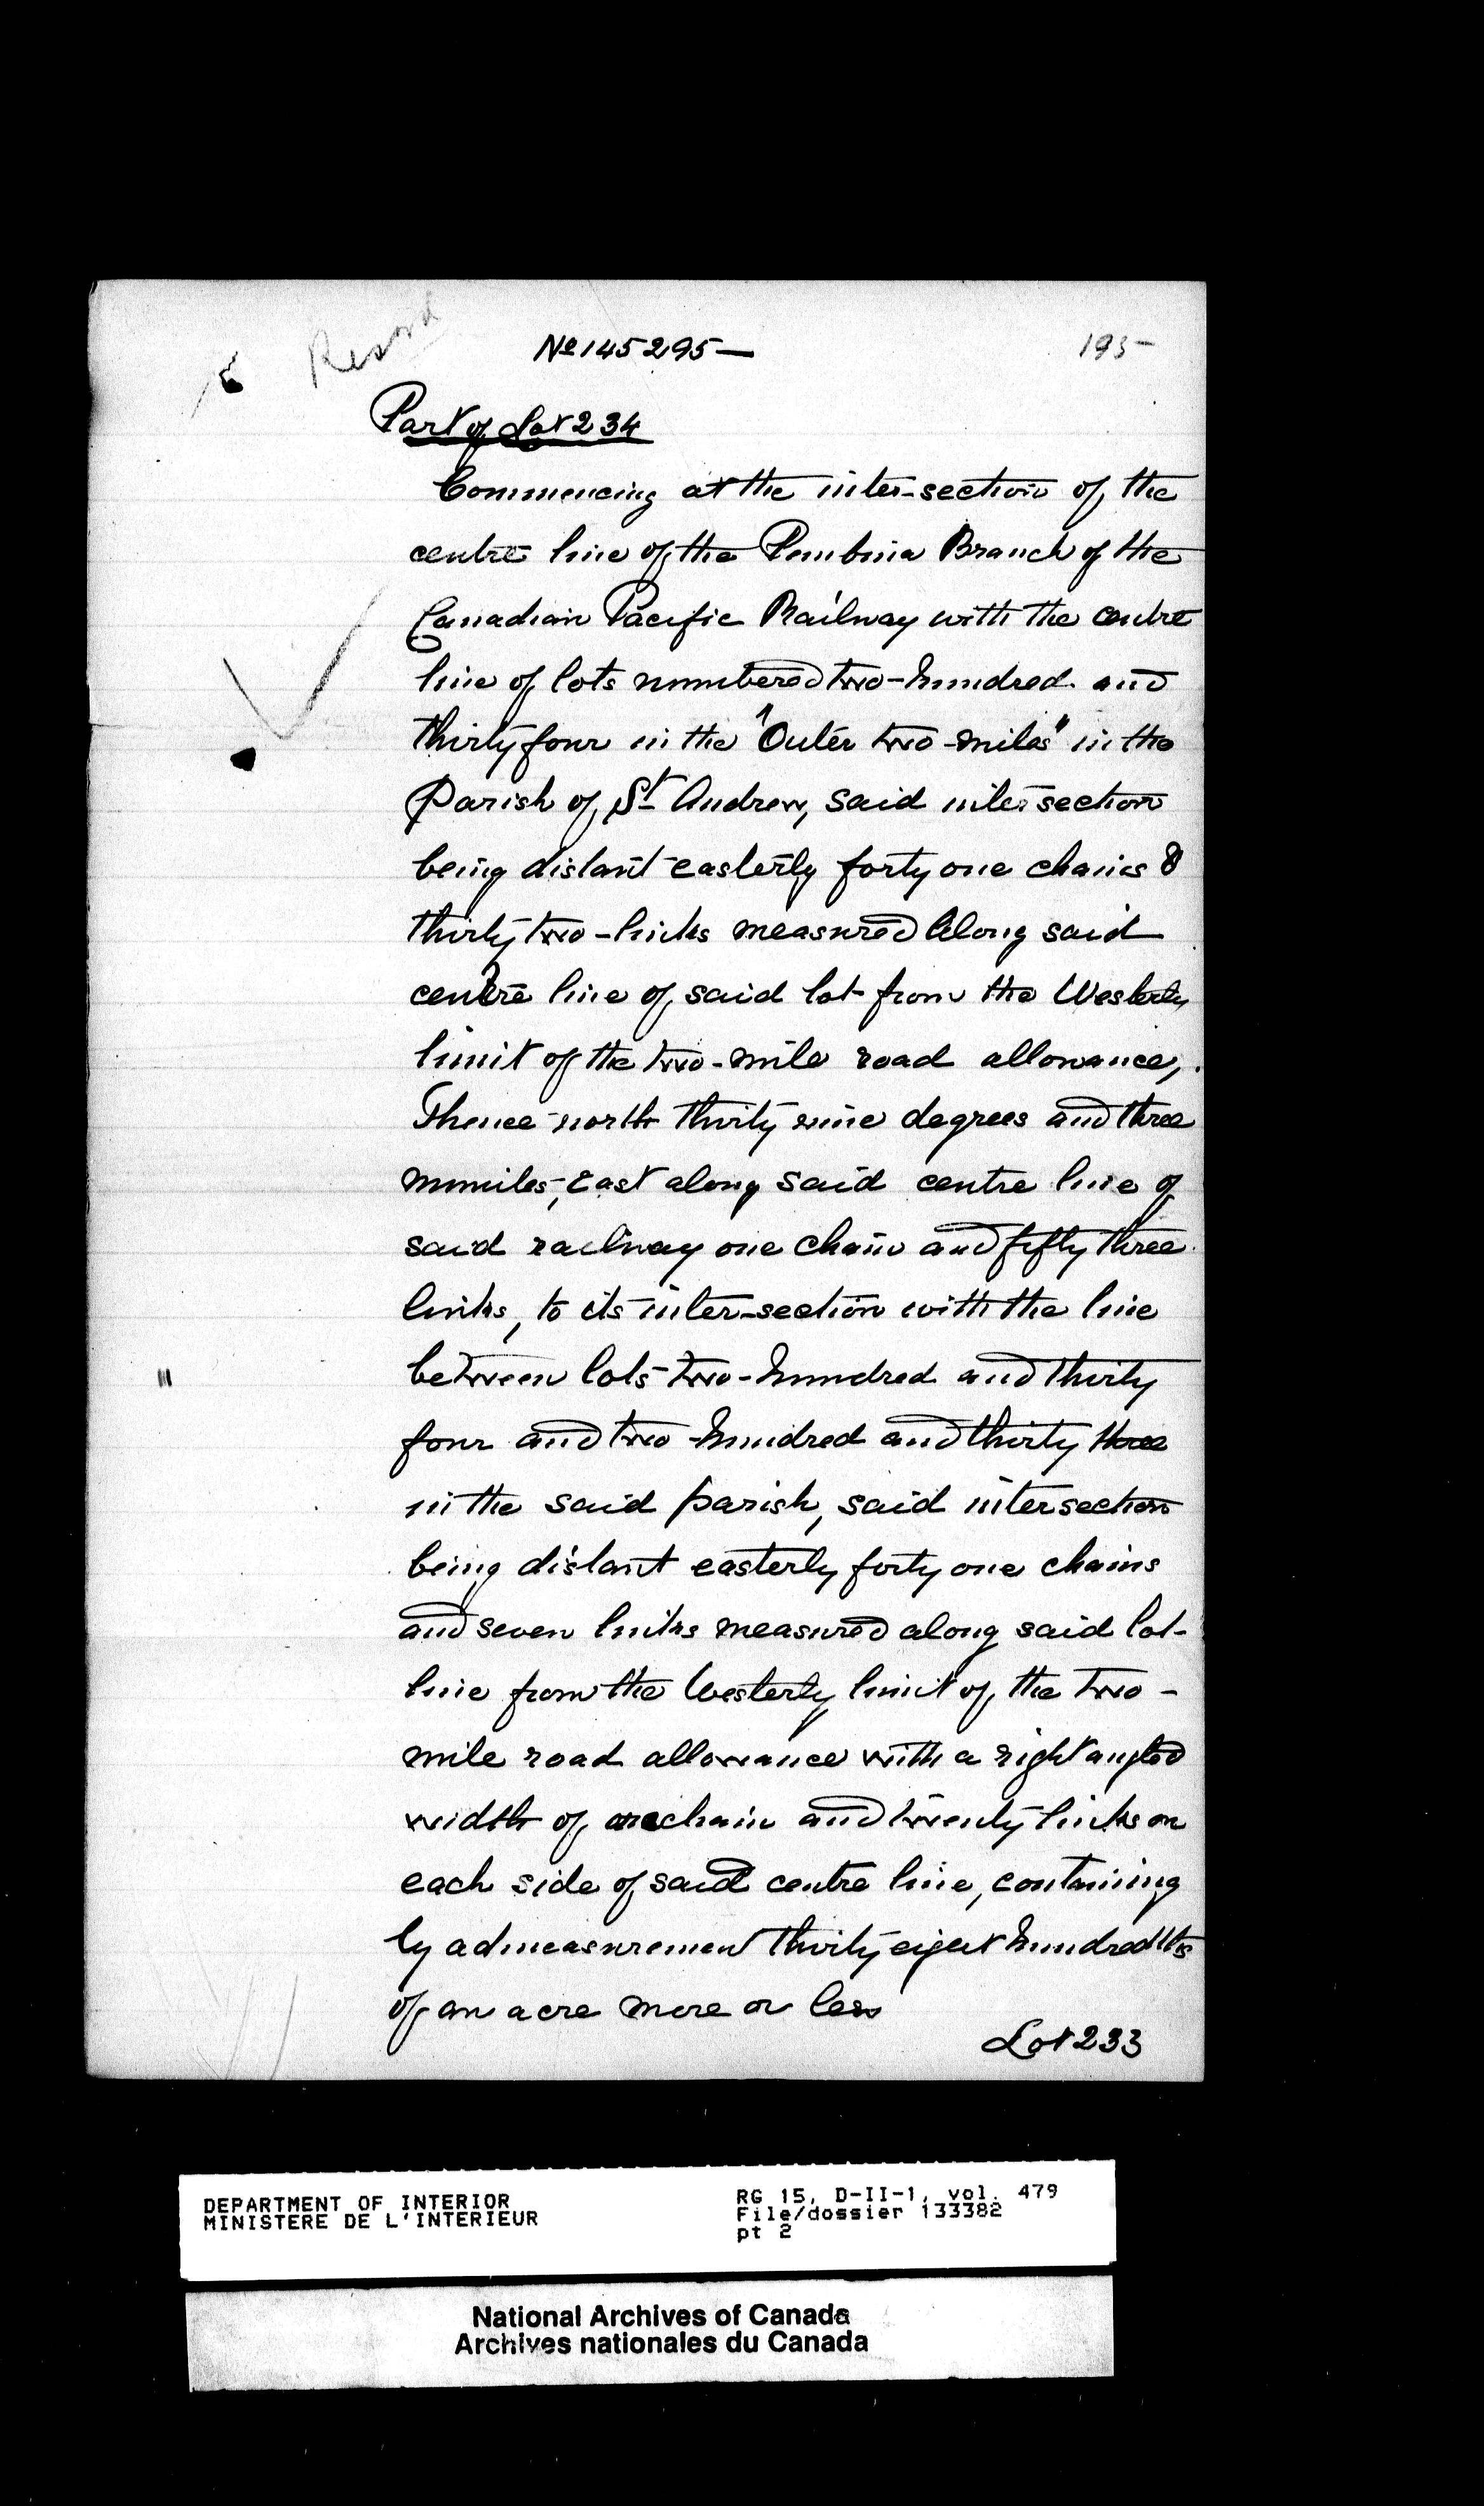 Record
No 145295—
195
Part of Lot 234
Commencing at the inter-section of the
centre line of the Pembina Branch of the
Canadian Pacific Railway with the centre
line of lots numbered two-hundred and
thirty four in the "Outer two-miles" in the
Parish of St Andrew, said intersection
being distant easterly forty one chains &
thirty two-links measured along said
centre line of said lot from the Westerly
limit of the two-mile road allowance,
Thence north thirty nine degrees and three
minutes, East along said centre line of
said railway one chain and fifty three
links, to its inter-section with the line
between lots two-hundred and thirty
four and two-hundred and thirty three
in the said parish, said intersection
being distant easterly forty one chains
and seven links measured along said lot-
line from the Westerly limit of the two-
mile road allowance with a right angled
width of one chain and twenty links on
each side of said centre line, containing
by admeasurement thirty eight hundredths
of an acre more or less
Lot 233
DEPARTMENT OF INTERIOR
MINISTERE DE L'INTERIEUR
RG 15, D-II-1, vol. 479
File/dossier 133382
pt 2
National Archives of Canada
Archives nationales du Canada